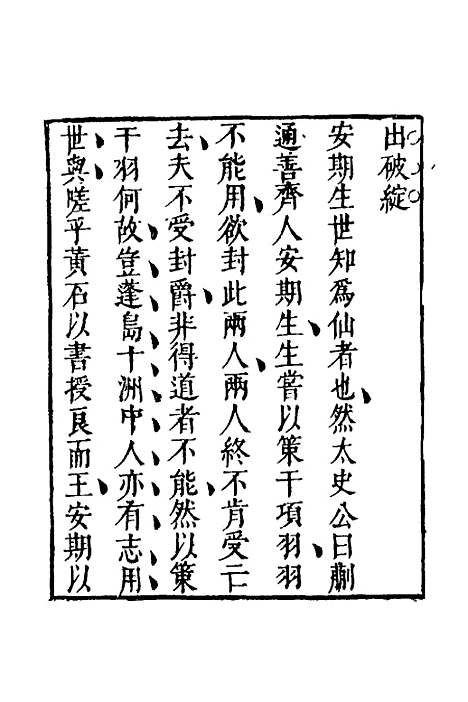 出破綻
安期生世知爲仙者也然太史公曰蒯
通善齊人安期生生嘗以策干項羽羽
不能用欲封此兩人兩人終不肯受亡
去夫不受封爵非得道者不能然以策
干羽何故豈蓬島十洲中人亦有志用
世與嗟乎黃石以書授良而王安期以